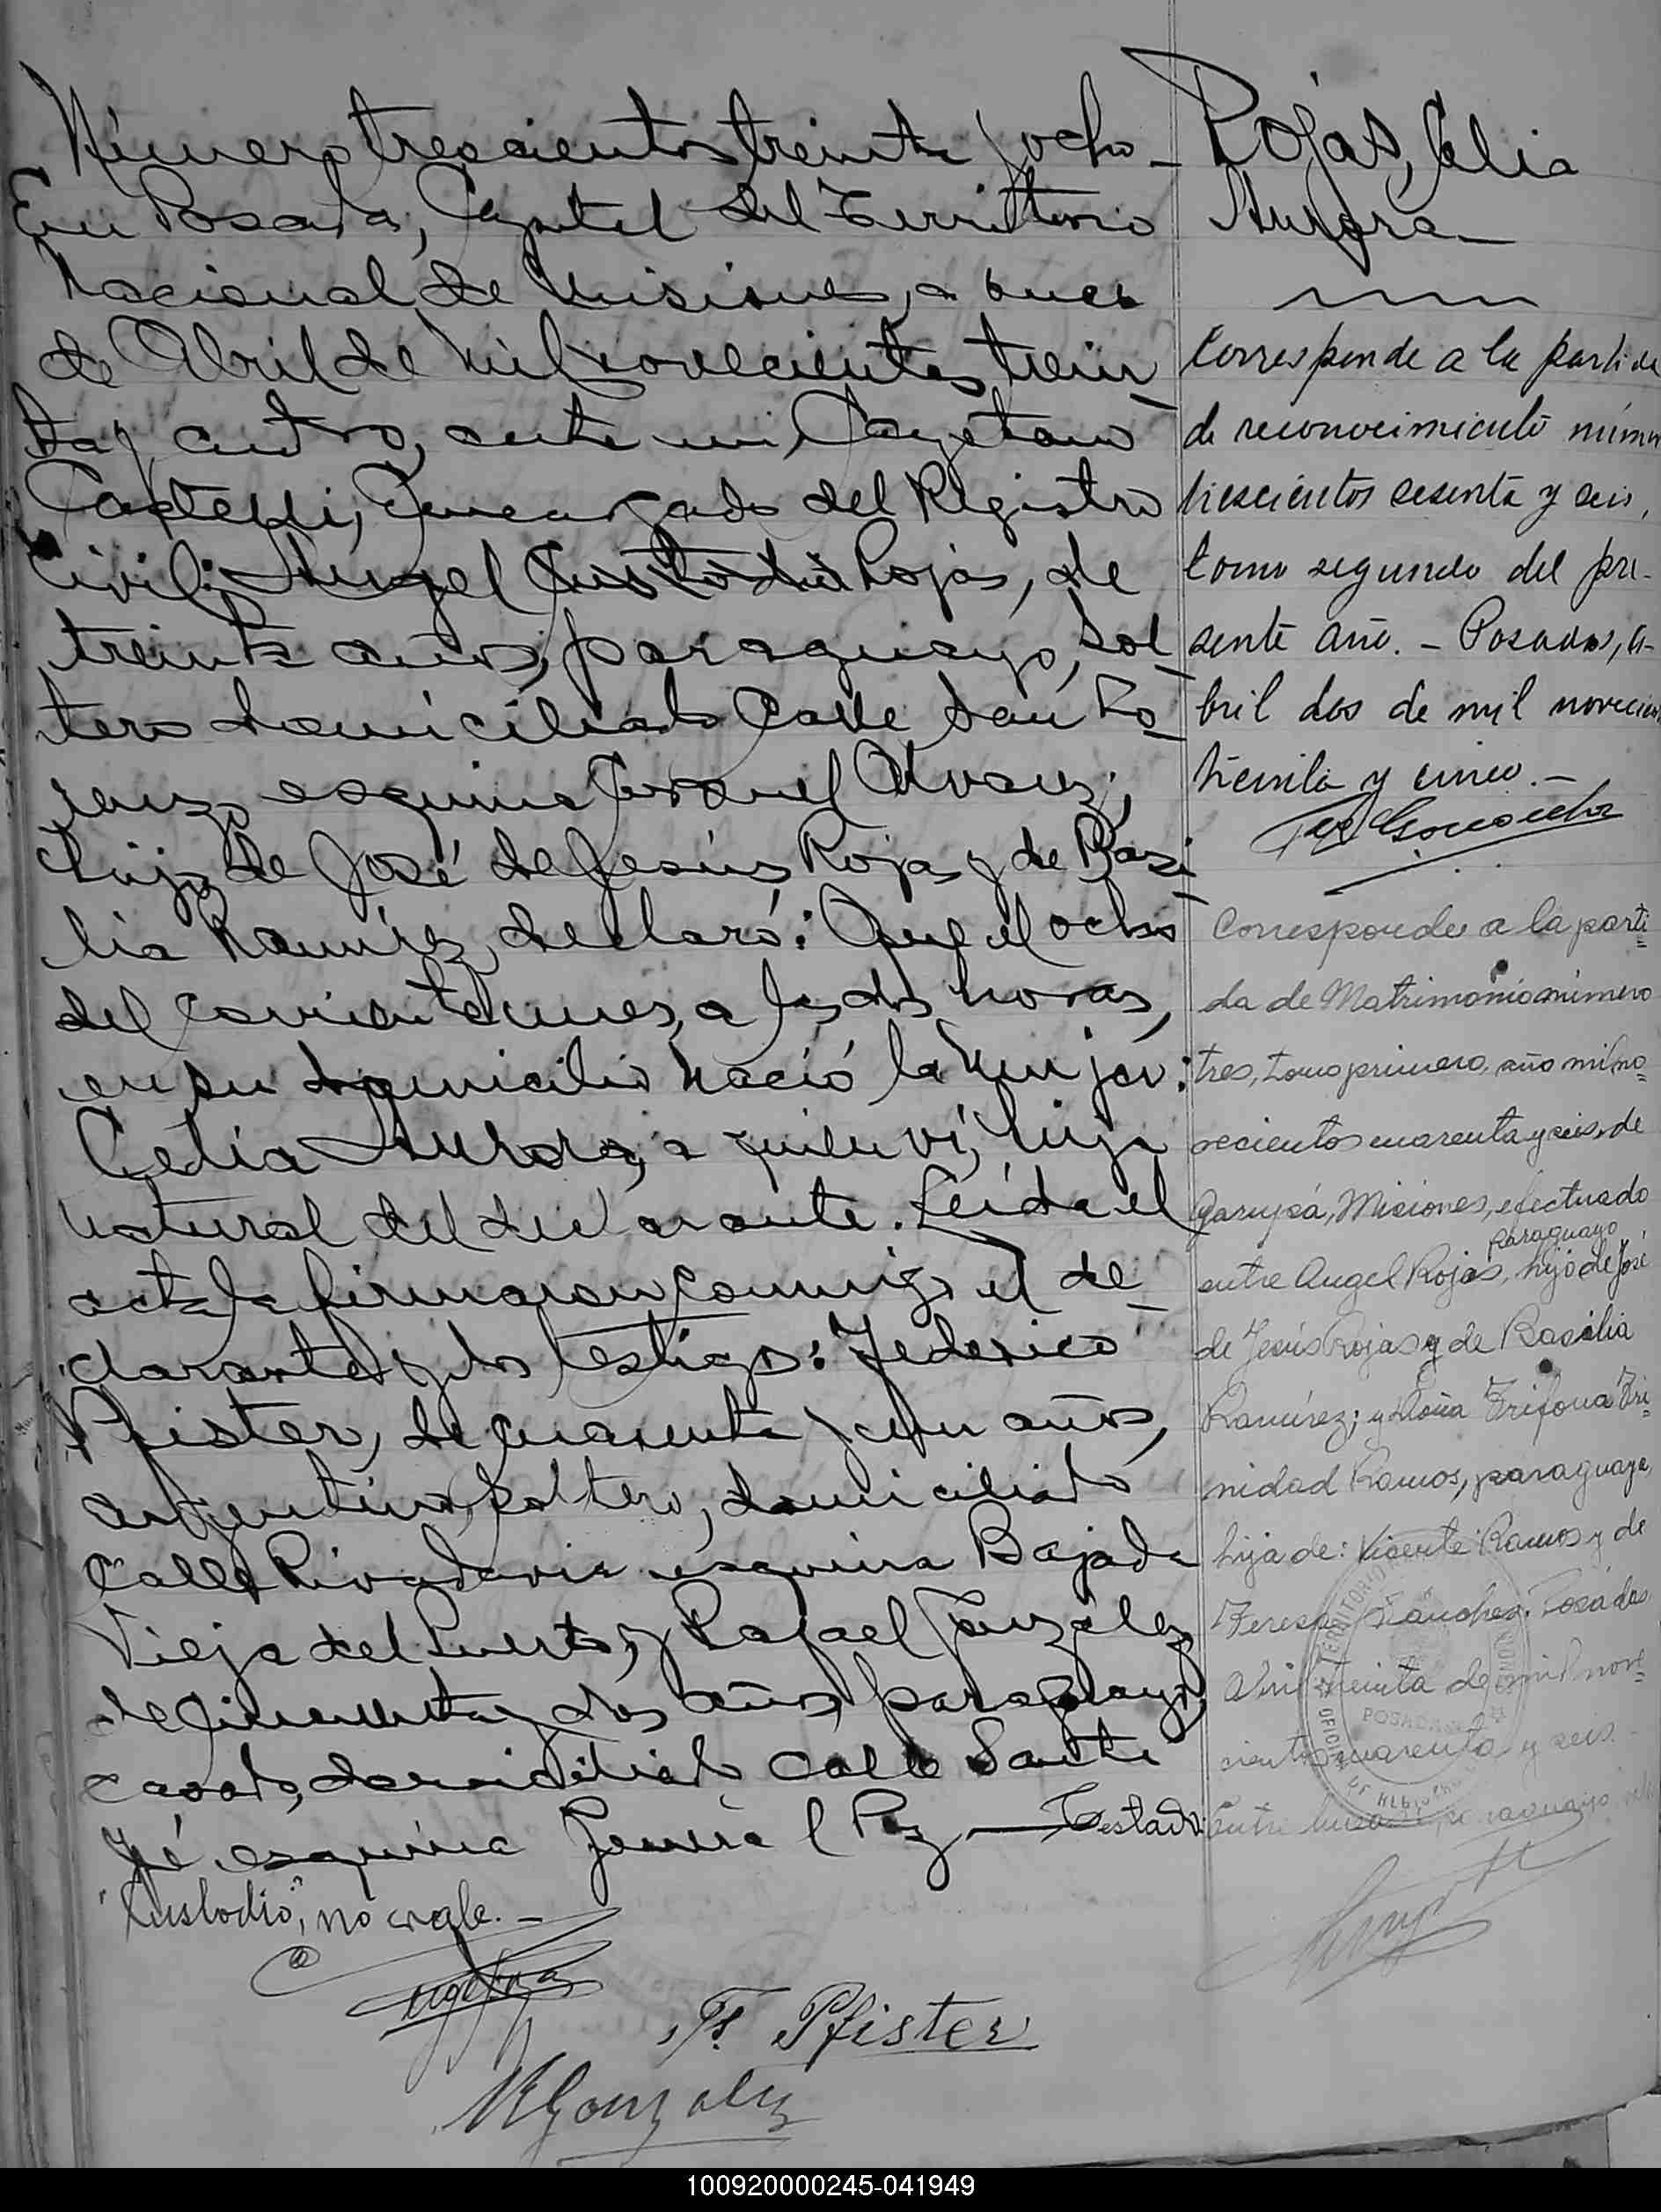 Número trescientos treinta y ocho –
En Posadas, Capital del Territorio
Nacional de Misiones, a once
de Abril de mil novecientos trein-
ta y cuatro, ante mi, Cayetano
Castelli, Encargado del Registro
Civil: Angel Custodio Rojas, de
treinta años, paraguayo, sol-
tero domiciliado Calle San Lo-
renzo esquina Coronel Alvarez;
hijo de José de Jesús Rojas y de Basi-
lia Ramírez, declaró: Que el ocho
del corriente mes, a las dos horas,
en su domicilio nació la mujer:
Celia Aurora, a quien ví, hija
natural del declarante. Leída el
acta la firmaron conmigo el de-
clarante y los testigos: Federico
Pfister, de cuarenta y un años,
argentino, soltero, domiciliado
Calle Rivadavia esquina Bajada
Vieja del Puerto, y Rafael González
de cincuenta y dos años, paraguayo,
casado, domiciliado calle Santa
Fé esquina General Paz. — Testado:
"Custodio", no vale. –
F. Pfister
R Gonzalez
Rojas, Celia
Aurora –
Corresponde a la partida
de reconocimiento número
trescientos sesenta y seis,
tomo segundo del pre-
sente año. – Posadas, a-
bril dos de mil novecientos
treinta y cinco. –
Corresponde a la parti=
da de Matrimonio número
tres, tomo primero, año mil no=
vecientos cuarenta y seis, de
Garupá, Misiones, efectuado
paraguayo
entre Angel Rojas, hijo de José
de Jesús Rojas y de Basilia
Ramírez; y Doña Trifona Tri=
nidad Ramos, paraguaya,
hija de: Vicente Ramos y de
Teresa Sánchez. Posadas
Abril treinta de mil nove=
cientos cuarenta y seis. –
Entre líneas: paraguayo, vale
POSADAS
100920000245-041949